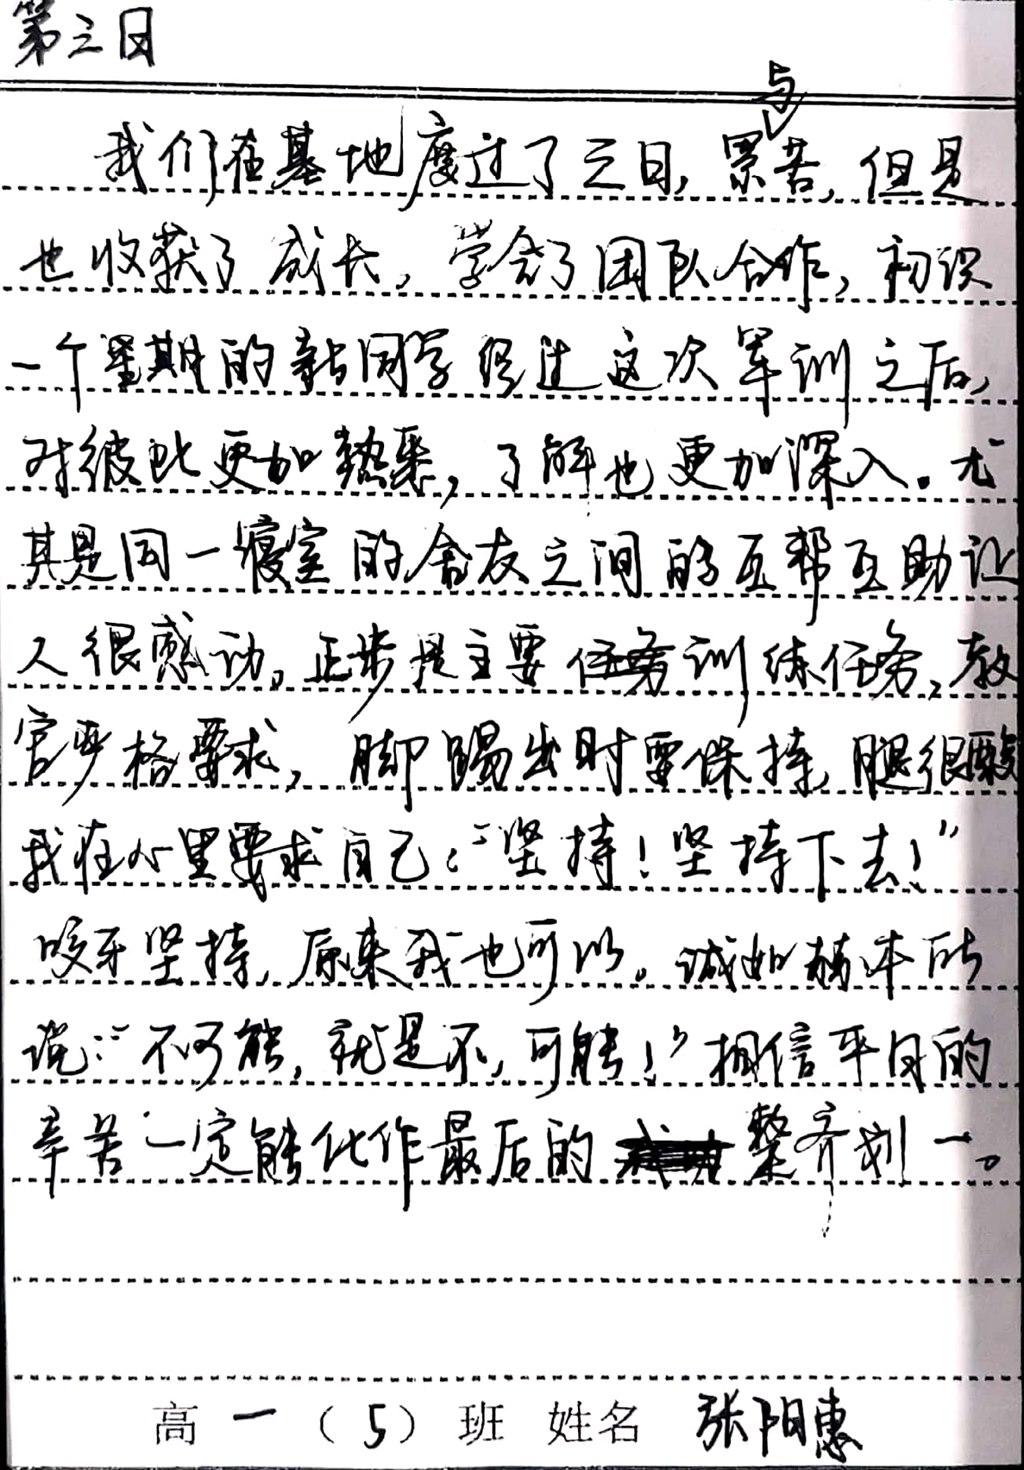 第三日
我们在基地度过了三日,累与苦,但是
也收获了成长,学会了团队合作,初识
一个星期的新同学经过这次军训之后,
对彼此更加熟悉,了解也更加深入。尤
其是同一寝室的舍友之间的互帮互助让
人很感动。正步是主要任务训练任务,教
官严格要求,脚踢出时要保持,腿很酸
我在心里要求自己:“坚持!坚持下去!”
咬牙坚持,原来我也可以。诚如 所
说:“不可能,就是不,可能!”相信平日的
辛苦一定能化作最后的 整齐划一。
高一(5)班 姓名 张阳惠